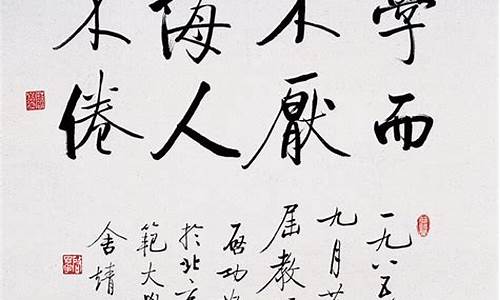 學而
不厭
誨人
不倦
一九八五
九月
屆教
啓功
於北京
範大學
舍靖